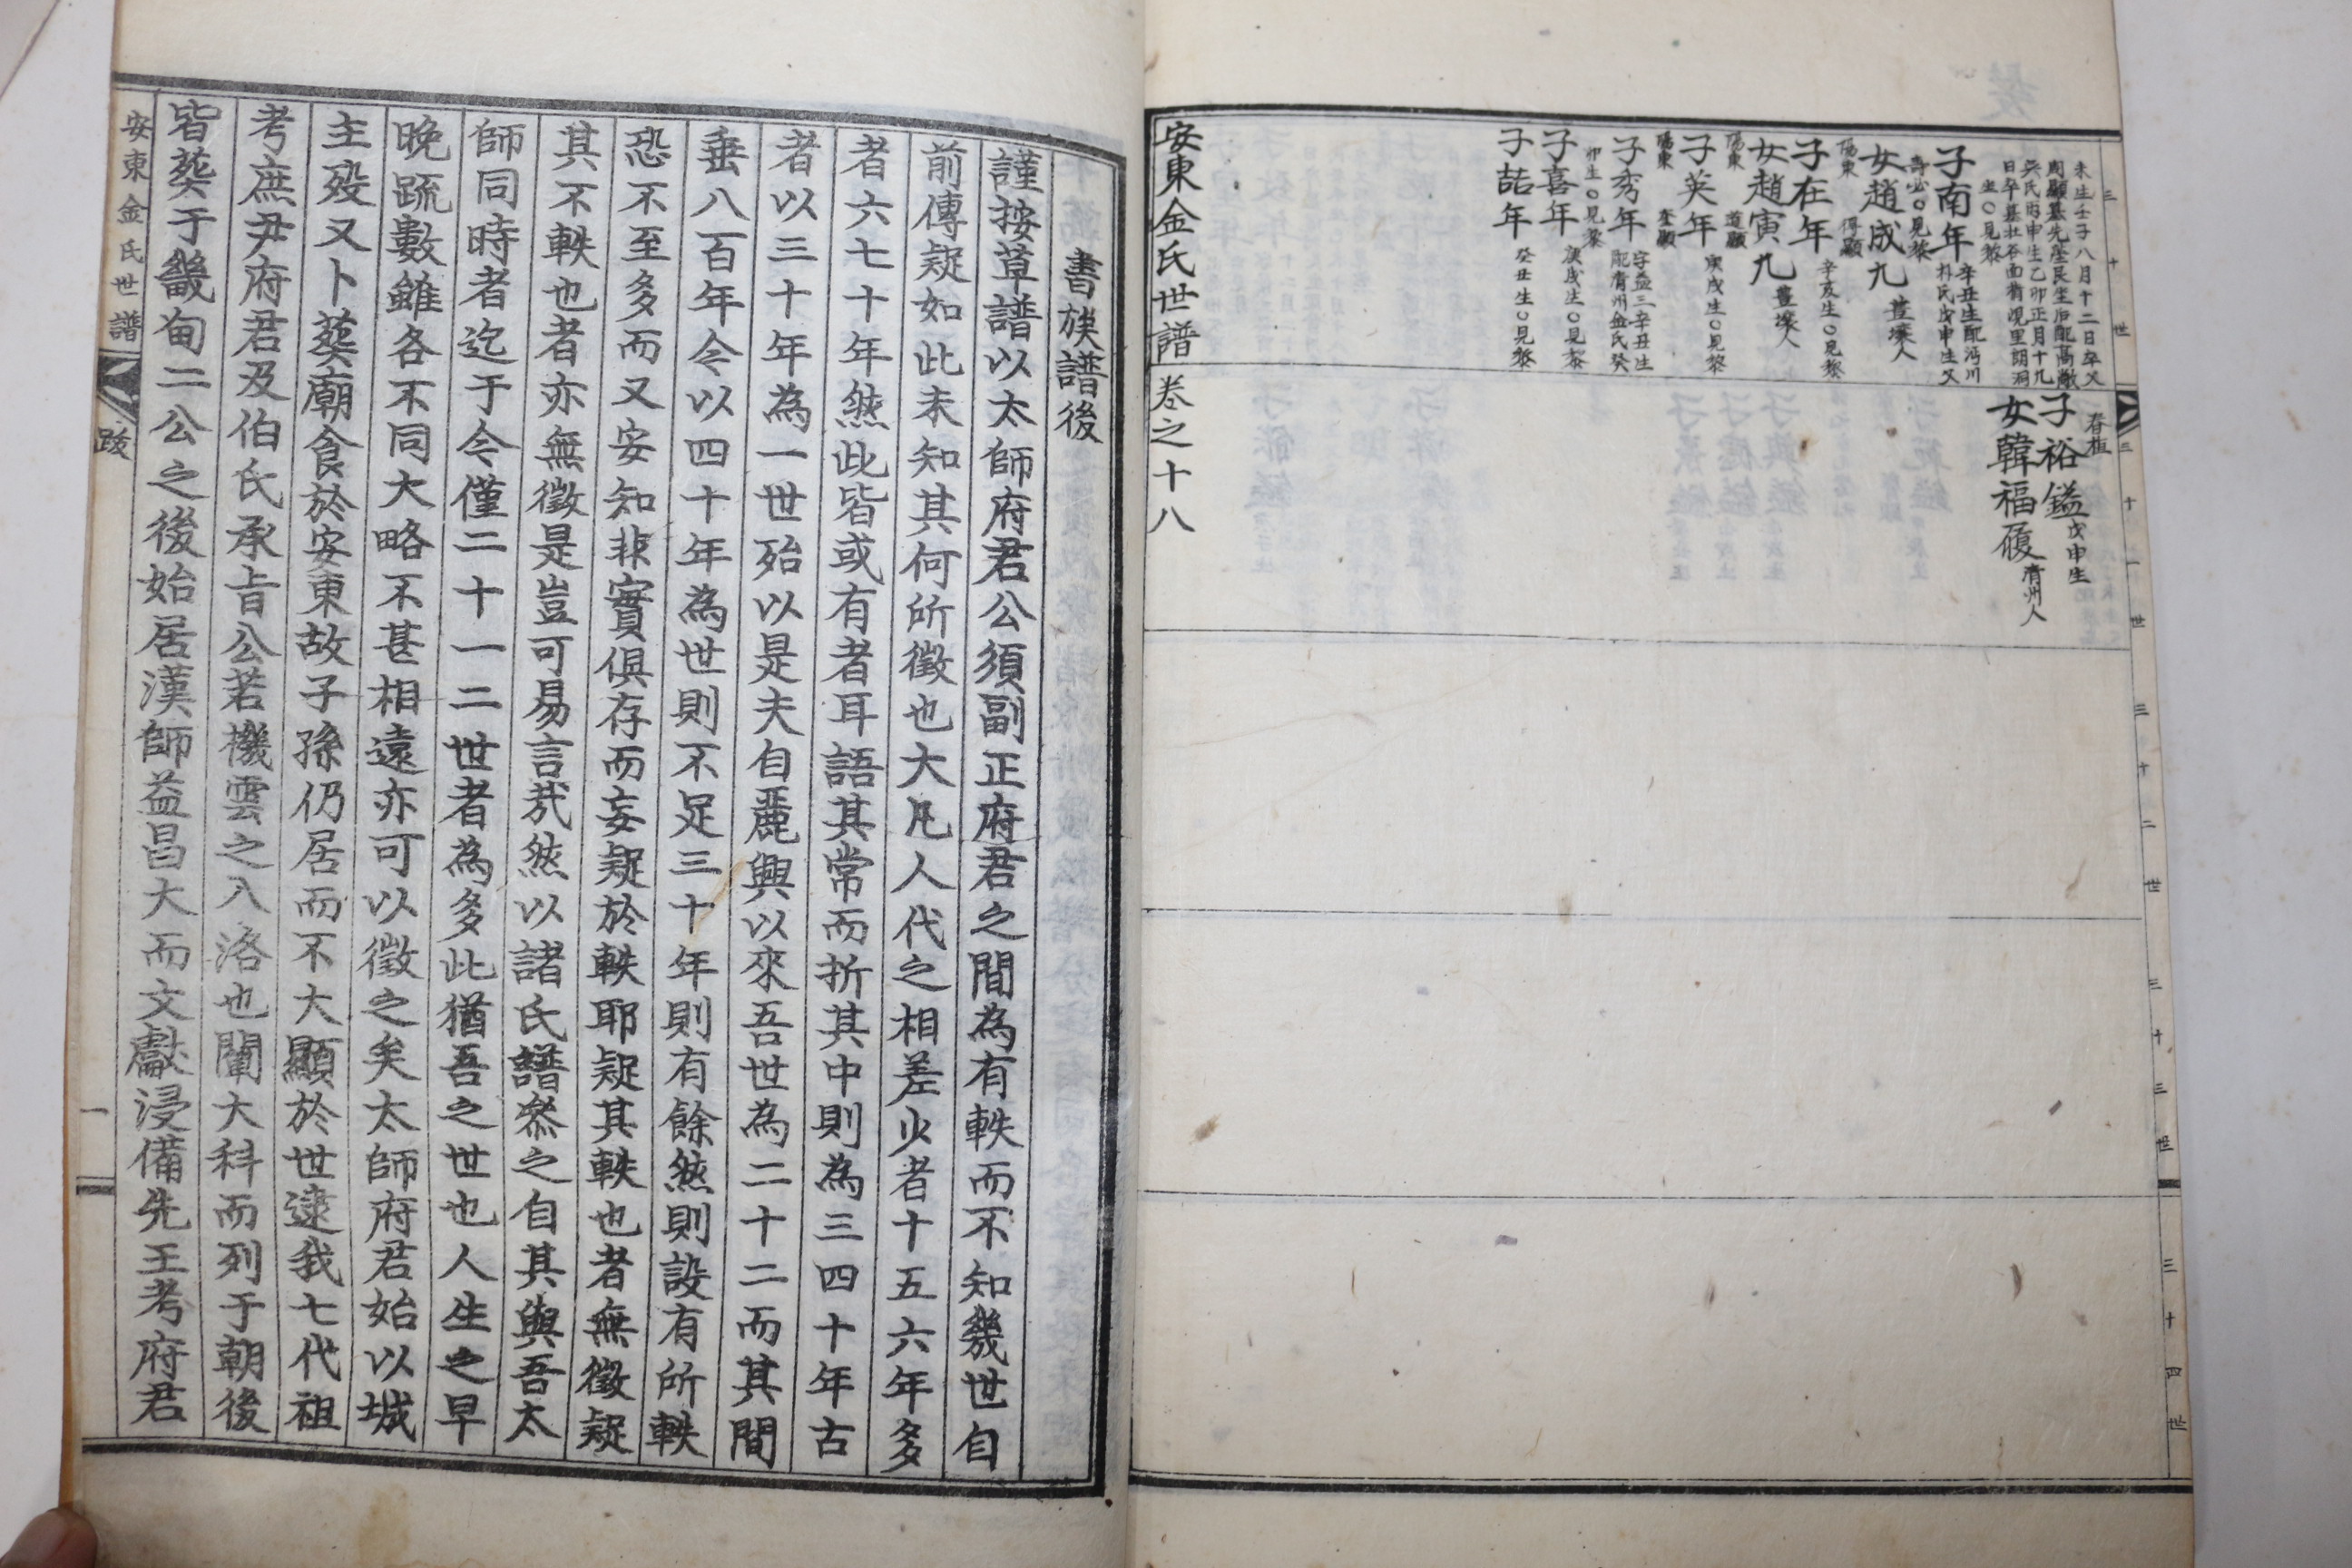 三十世
三十一世
三十二世
三十三世
三十四世
未生壬子八月十二日卒父
周顯墓先塋艮坐
吳氏丙申生乙卯正月十九
日卒墓
坐○見黎
子南年
辛丑生配沔川
朴氏戊申生父
壽必○見黎
女趙成九
豊壤人
陽東
得顯
子在年
辛亥生○見黎
女趙寅九
豊壤人
陽東
道顯
子英年
庚戌生○見黎
陽東
奎顯
子秀年
字益三辛丑生
配清州金氏癸
卯生○見黎
子喜年
庚戌生○見黎
子喆年
癸丑生○見黎
春植
子裕鎰
戊申生
女韓福履
清州人
安東金氏世譜 卷之十八
書族譜後
謹按草譜以太師府君公須副正府君之間為有軼而不知幾世自
前傳疑如此未知其何所徵也大凡人代之相差少者十五六年多
者六七十年然此皆或有者耳語其常而折其中則為三四十年古
者以三十年為一世殆以是夫自麗興以來吾世為二十二而其間
垂八百年今以四十年為世則不足三十年則有餘然則設有所軼
恐不至多而又安知非實俱存而妄疑於軼耶疑其軼也者無徵疑
其不軼也者亦無徵是豈可易言哉然以諸氏譜叅之自其與吾太
師同時者迄于今僅二十一二世者為多此猶吾之世也人生之早
晚䟽數雖各不同大略不甚相遠亦可以徵之矣太師府君始以城
主歿又卜葬廟食於安東故子孫仍居而不大顯於世逮我七代祖
考庶尹府君及伯氏承旨公若機雲之入洛也闡大科而列于朝後
皆葬于畿甸二公之後始居漢師益昌大而文獻浸備先王考府君
安東金氏世譜
跋
一